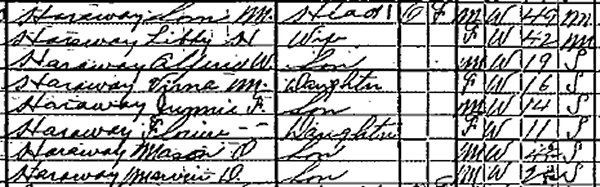 Haraway Lon M. Head 1 O F M W 49 M
Haraway Libby H Wife F W 42 M
Haraway Alfred W. Son M W 19 S
Haraway Virna M. Daughter F W 16 S
Haraway Jimmie F. Son M W 14 S
Haraway Floriene -- Daughter F W 11 S
Haraway Mason O Son M W S
Haraway Marvin D. Son M W S